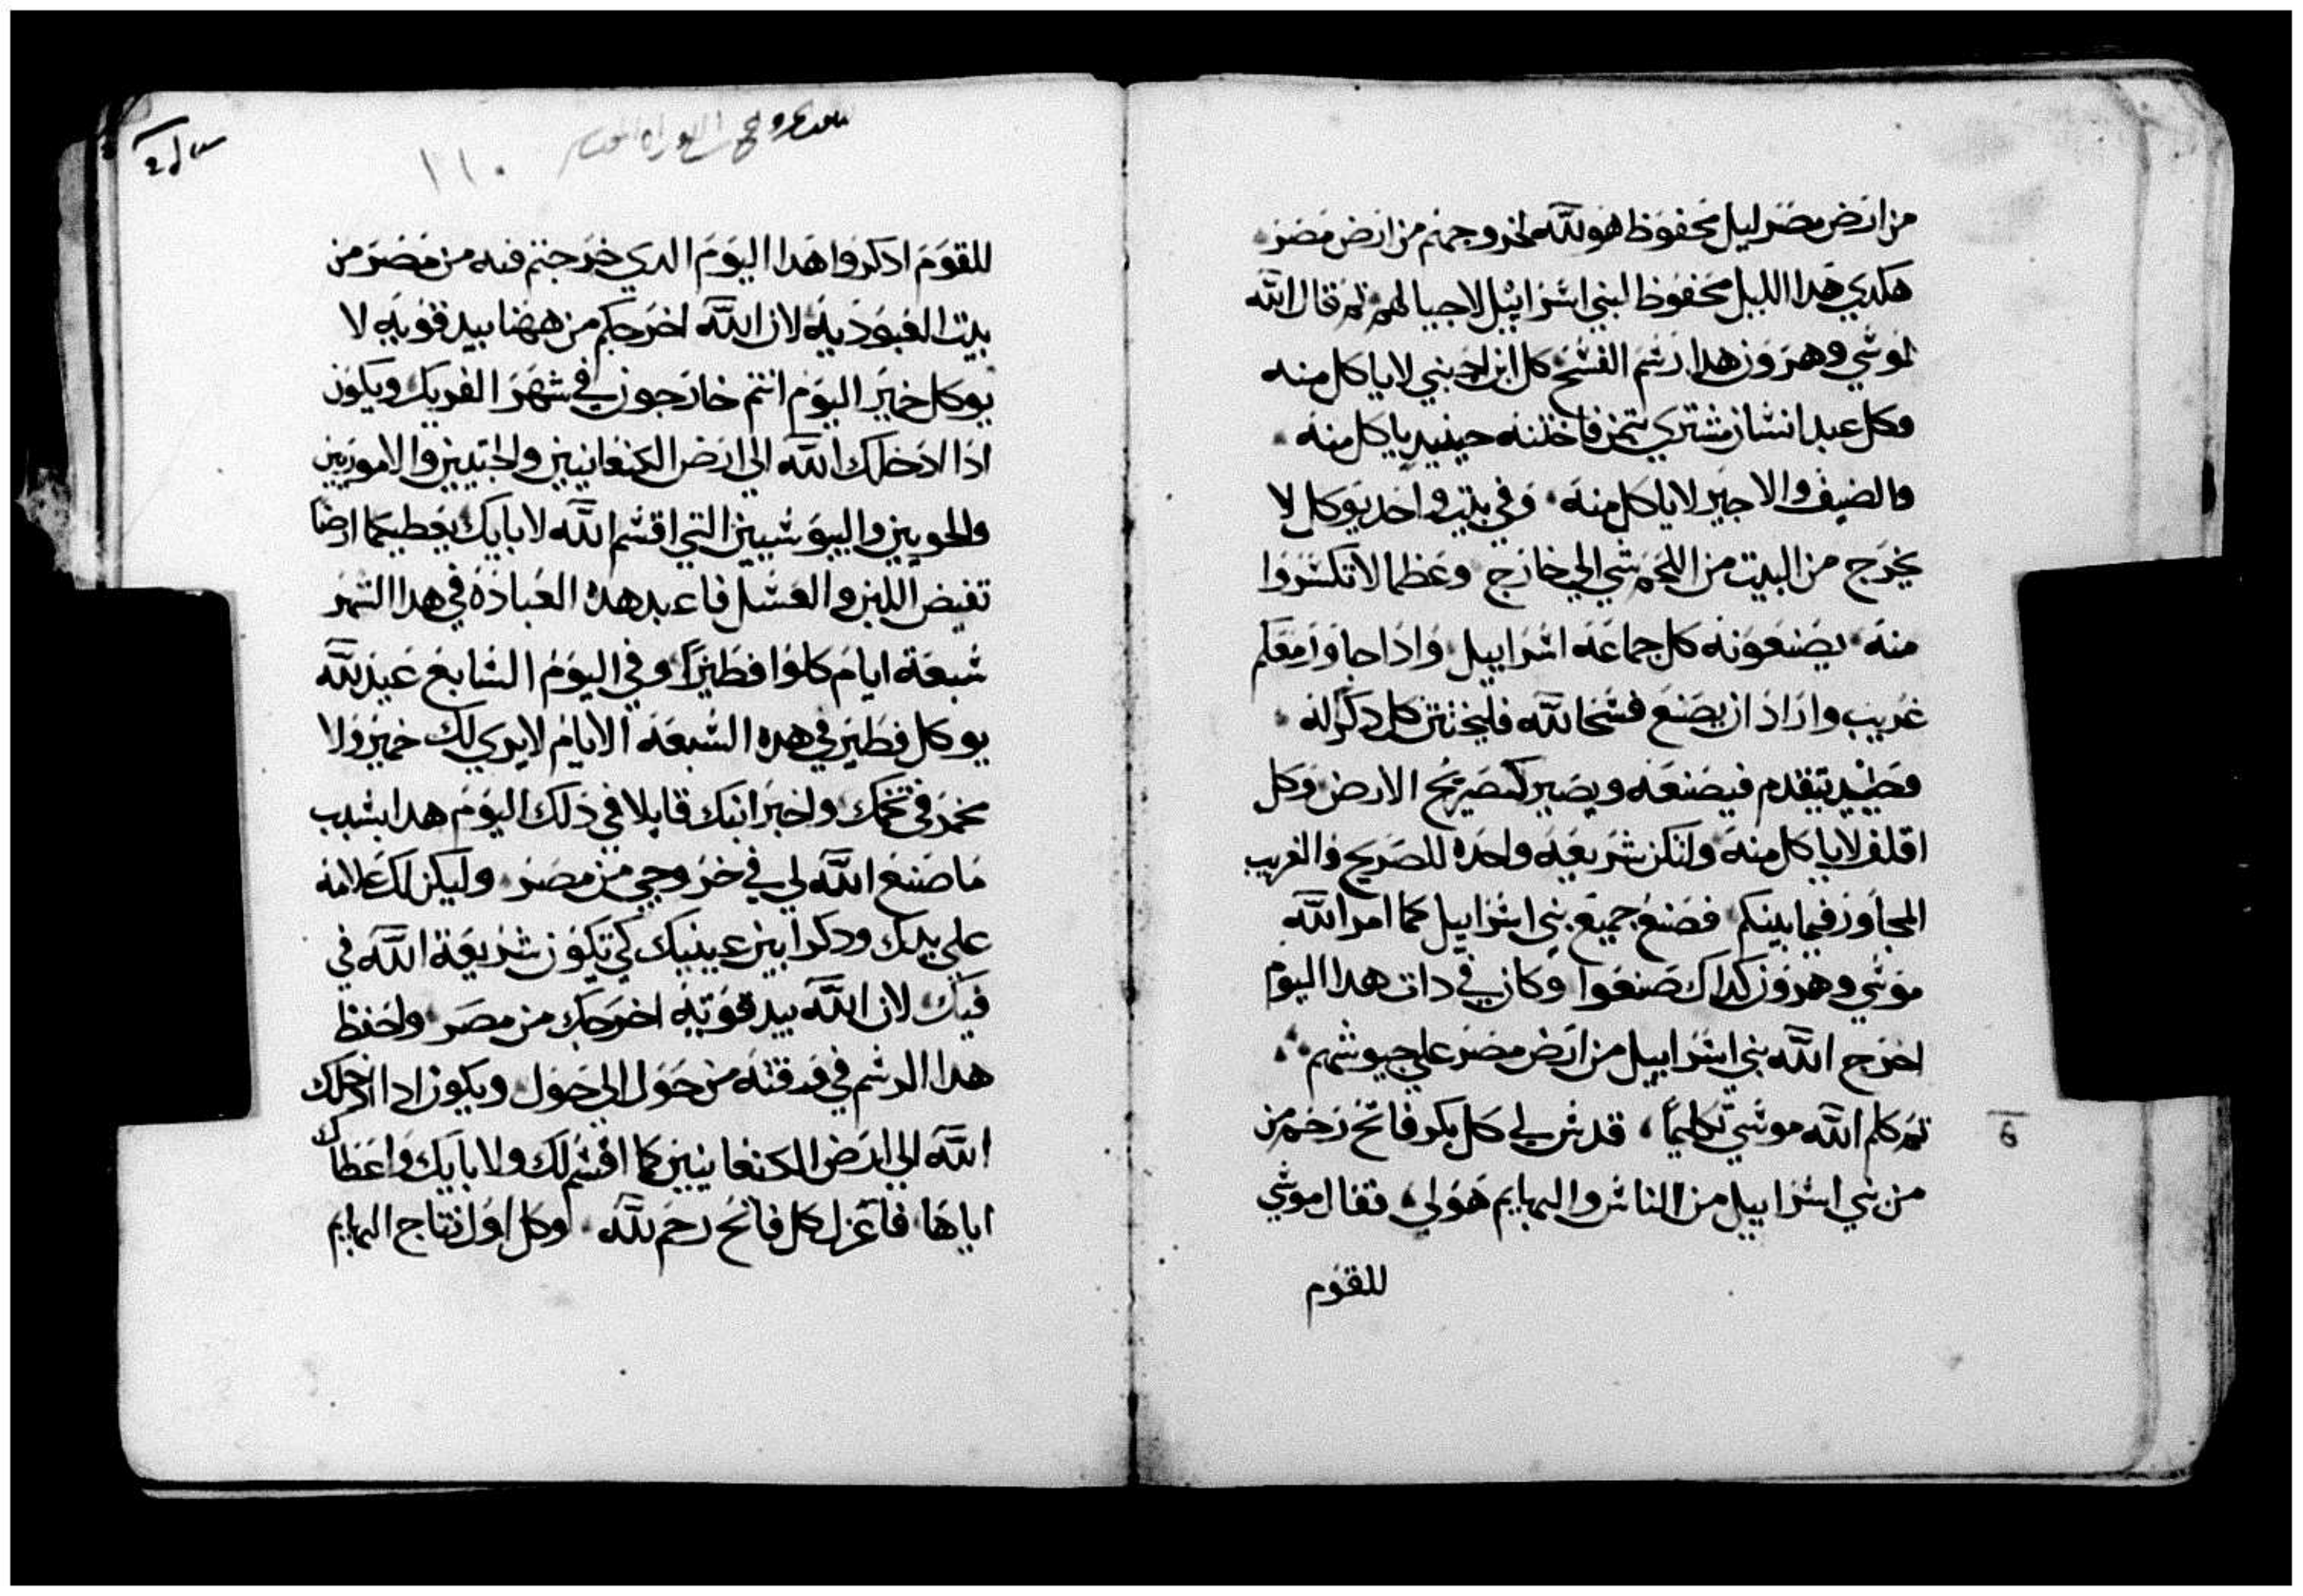 من ارض مصر ليل محفوظ هو لله لخروجهم من ارض مصر
هكدي هدا الليل محفوظ لبني اسراييل لاجيالهم ثم قال الله
لموسي وهرون هدا رسم الفسح كل ابن اجنبي لا ياكل منه
وكل عبد انسان مشتري بثمن فاختنه حينيد ياكل منه
والضيف والاجير لا ياكل منه وفي بيت واحد يوكل لا
يخرج من البيت من اللحم شي الي خارج وعظما لا تكسروا
منه يصنعونه كل جماعة اسراييل واذا جاور معكم
غريب واراد ان يصنع فسحا لله فليختتن كل دكر له
وحينيد يتقدم فيصنعه ويصير كصريح الارض وكل
اقلف لا ياكل منه ولتكن شريعة واحده للصريح والغريب
المجاور فيما بينكم فصنع جميع بني اسراييل كما امر الله
موسي وهرون كداك صنعوا وكان في دات هدا اليوم
اخرج الله بني اسراييل من ارض مصر علي جيوشهم
ثم كلم الله موسي تكليما قدس لي كل بكر فاتح رحم من
من بني اسراييل من الناس والبهايم هو لي فقال موسي
للقوم
١١٠
للقوم ادكروا هدا اليوم الدي خرجتم فيه من مصر من
بيت العبودية لان الله اخرجكم من ههنا بيد قوية لا
يوكل خمير اليوم انتم خارجون في شهر الفريك ويكون
اذا ادخلك الله الي ارض الكنعانيين والحتيين والاموريين
والحويين واليبوسيين التي اقسم الله لابايك يعطيكما ارضا
تفيض اللبن والعسل فاعبد هده العبادة في هدا الشهر
سبعة ايام كلوا فطيرا وفي اليوم السابع عيد لله
يوكل فطير في هده السبعة الايام لا يري لك خمير ولا
مختمر في تخمك واخبر ابنك قايلا في ذلك اليوم هدا بسبب
ما صنع الله لي في خروجي من مصر وليكن لك علامة
علي يدك ودكرا بين عينيك كي تكون شريعة الله في
فيك لان الله بيد قوية اخرجك من مصر واحفظ
هدا الرسم في وقته من حول الي حول ويكون ادا ادخلك
الله الي ارض الكنعانيين كما اقسم لك ولابايك واعطاك
اياها فاعزل كل فاتح رحم لله وكل اول نتاج البهايم